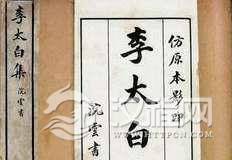 仿原本影印
李太白
沅雲書
李太白集
沅雲書